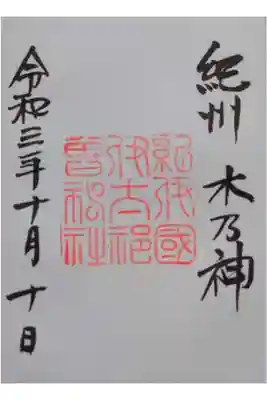 紀州 木乃神
紀伊國
伊太祁
曽神社
令和三年十月十日